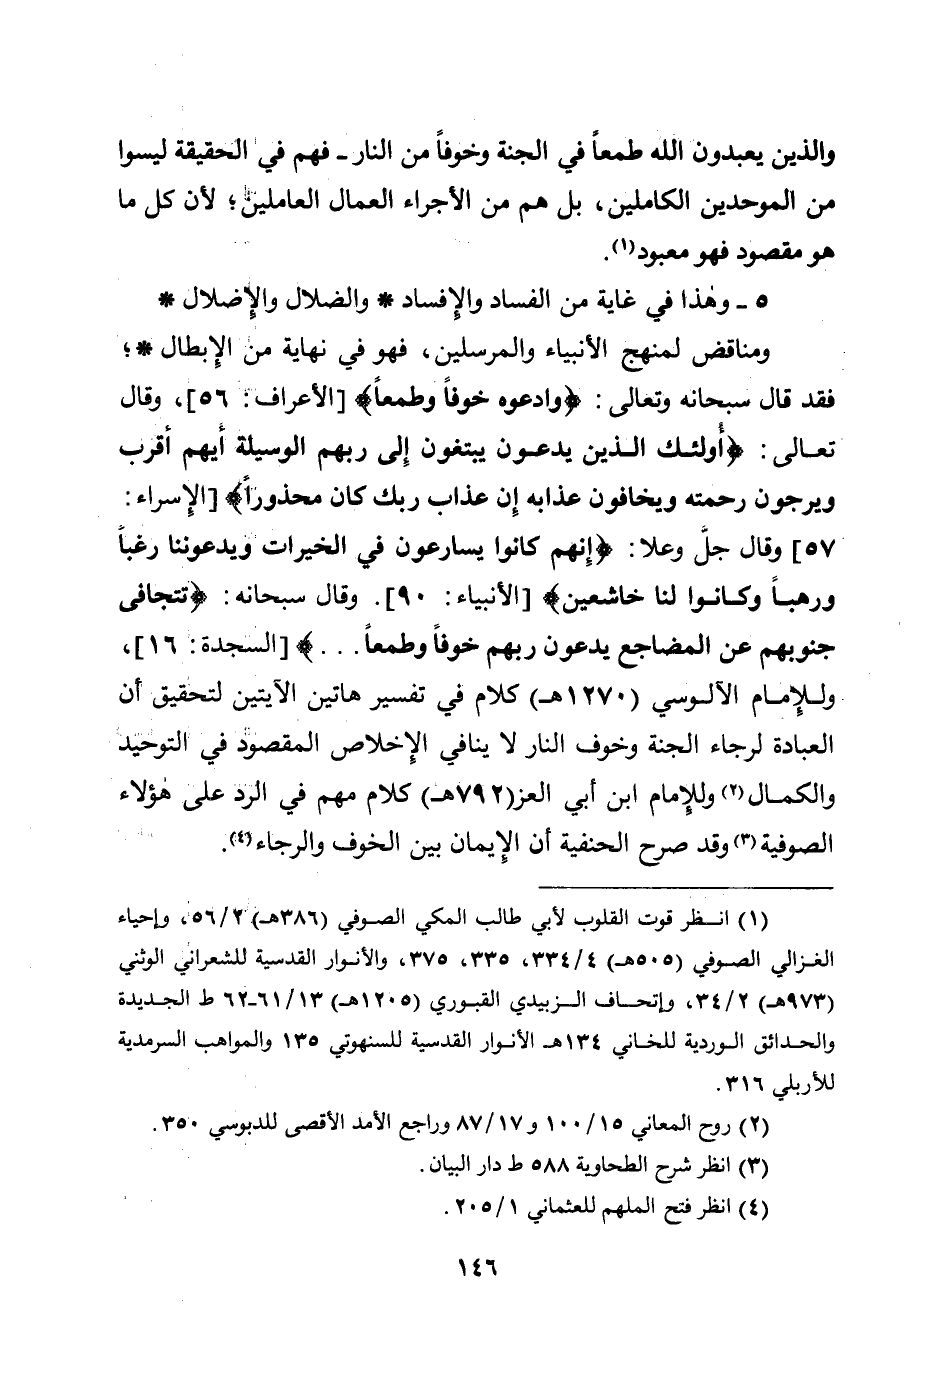 والذين يعبدون الله طمعاً في الجنة وخوفاً من النار ـ فهم في الحقيقة ليسوا
من الموحدين الكاملين، بل هم من الأجراء العمال العاملين؛ لأن كل ما
هو مقصود فهو معبود(١).
٥ ـ وهٰذا في غاية من الفساد والإفساد * والضلال والإضلال *
ومناقض لمنهج الأنبياء والمرسلين، فهو في نهاية من الإبطال *؛
فقد قال سبحانه وتعالى: ﴿وادعوه خوفاً وطمعاً﴾ [الأعراف: ٥٦]، وقال
تعالى: ﴿أُولئك الذين يدعون يبتغون إلى ربهم الوسيلة أيهم أقرب
ويرجون رحمته ويخافون عذابه إن عذاب ربك كان محذوراً﴾ [الإسراء:
٥٧] وقال جلَّ وعلا: ﴿إنهم كانوا يسارعون في الخيرات ويدعوننا رغباً
ورهباً وكانوا لنا خاشعين﴾ [الأنبياء: ٩٠]. وقال سبحانه: ﴿تتجافى
جنوبهم عن المضاجع يدعون ربهم خوفاً وطمعاً...﴾ [السجدة: ١٦]،
وللإمام الآلوسي (١٢٧٠هـ) كلام في تفسير هاتين الآيتين لتحقيق أن
العبادة لرجاء الجنة وخوف النار لا ينافي الإخلاص المقصود في التوحيد
والكمال(٢) وللإمام ابن أبي العز(٧٩٢هـ) كلام مهم في الرد على هٰؤلاء
الصوفية(٣) وقد صرح الحنفية أن الإيمان بين الخوف والرجاء(٤).
(١) انظر قوت القلوب لأبي طالب المكي الصوفي (٣٨٦هـ) ٥٦/٢، وإحياء
الغزالي الصوفي (٥٠٥هـ) ٣٣٤/٤، ٣٣٥، ٣٧٥، والأنوار القدسية للشعراني الوثني
(٩٧٣هـ) ٣٤/٢، وإتحاف الزبيدي القبوري (١٢٠٥هـ) ٦١/١٣-٦٢ ط الجديدة
والحدائق الوردية للخاني ١٣٤هـ الأنوار القدسية للسنهوتي ١٣٥ والمواهب السرمدية
للأربلي ٣١٦.
(٢) روح المعاني ١٠٠/١٥ و ٨٧/١٧ وراجع الأمد الأقصى للدبوسي ٣٥٠.
(٣) انظر شرح الطحاوية ٥٨٨ ط دار البيان.
(٤) انظر فتح الملهم للعثماني ٢٠٥/١.
١٤٦